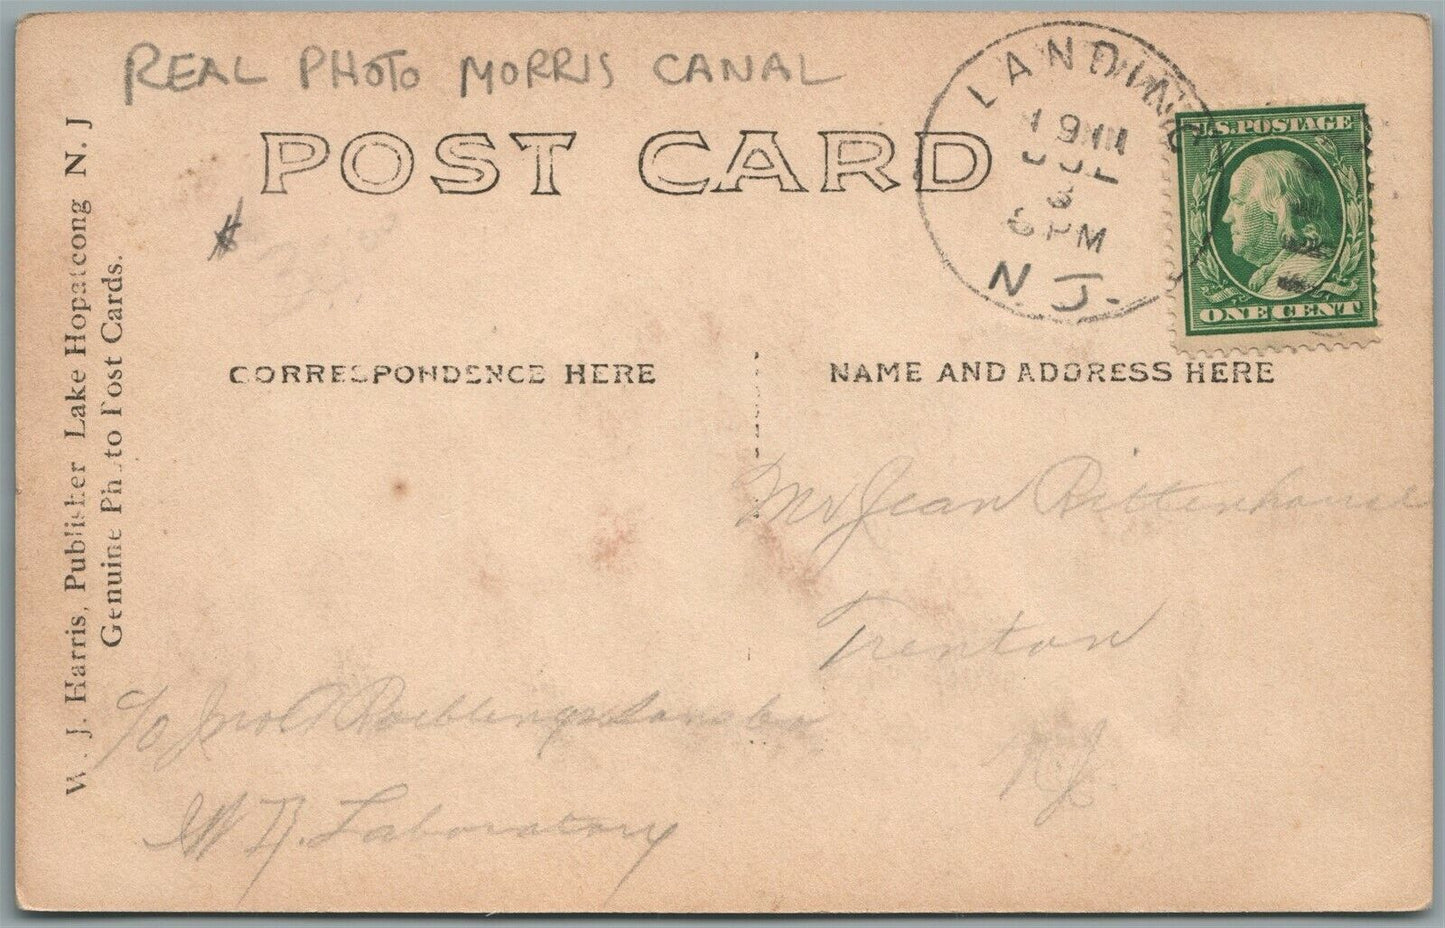 REAL PHOTO MORRIS CANAL
POST CARD
LANDING
JUL
6 PM
N. J.
U.S. POSTAGE
ONE CENT
W. J. Harris, Publisher Lake Hopatcong N. J
Genuine Photo Post Cards.
CORRESPONDENCE HERE
NAME AND ADDRESS HERE
Mr Jean Rittenhouse
Trenton
N.J.
c/o Jno A Roeblings Sons Co
Laboratory